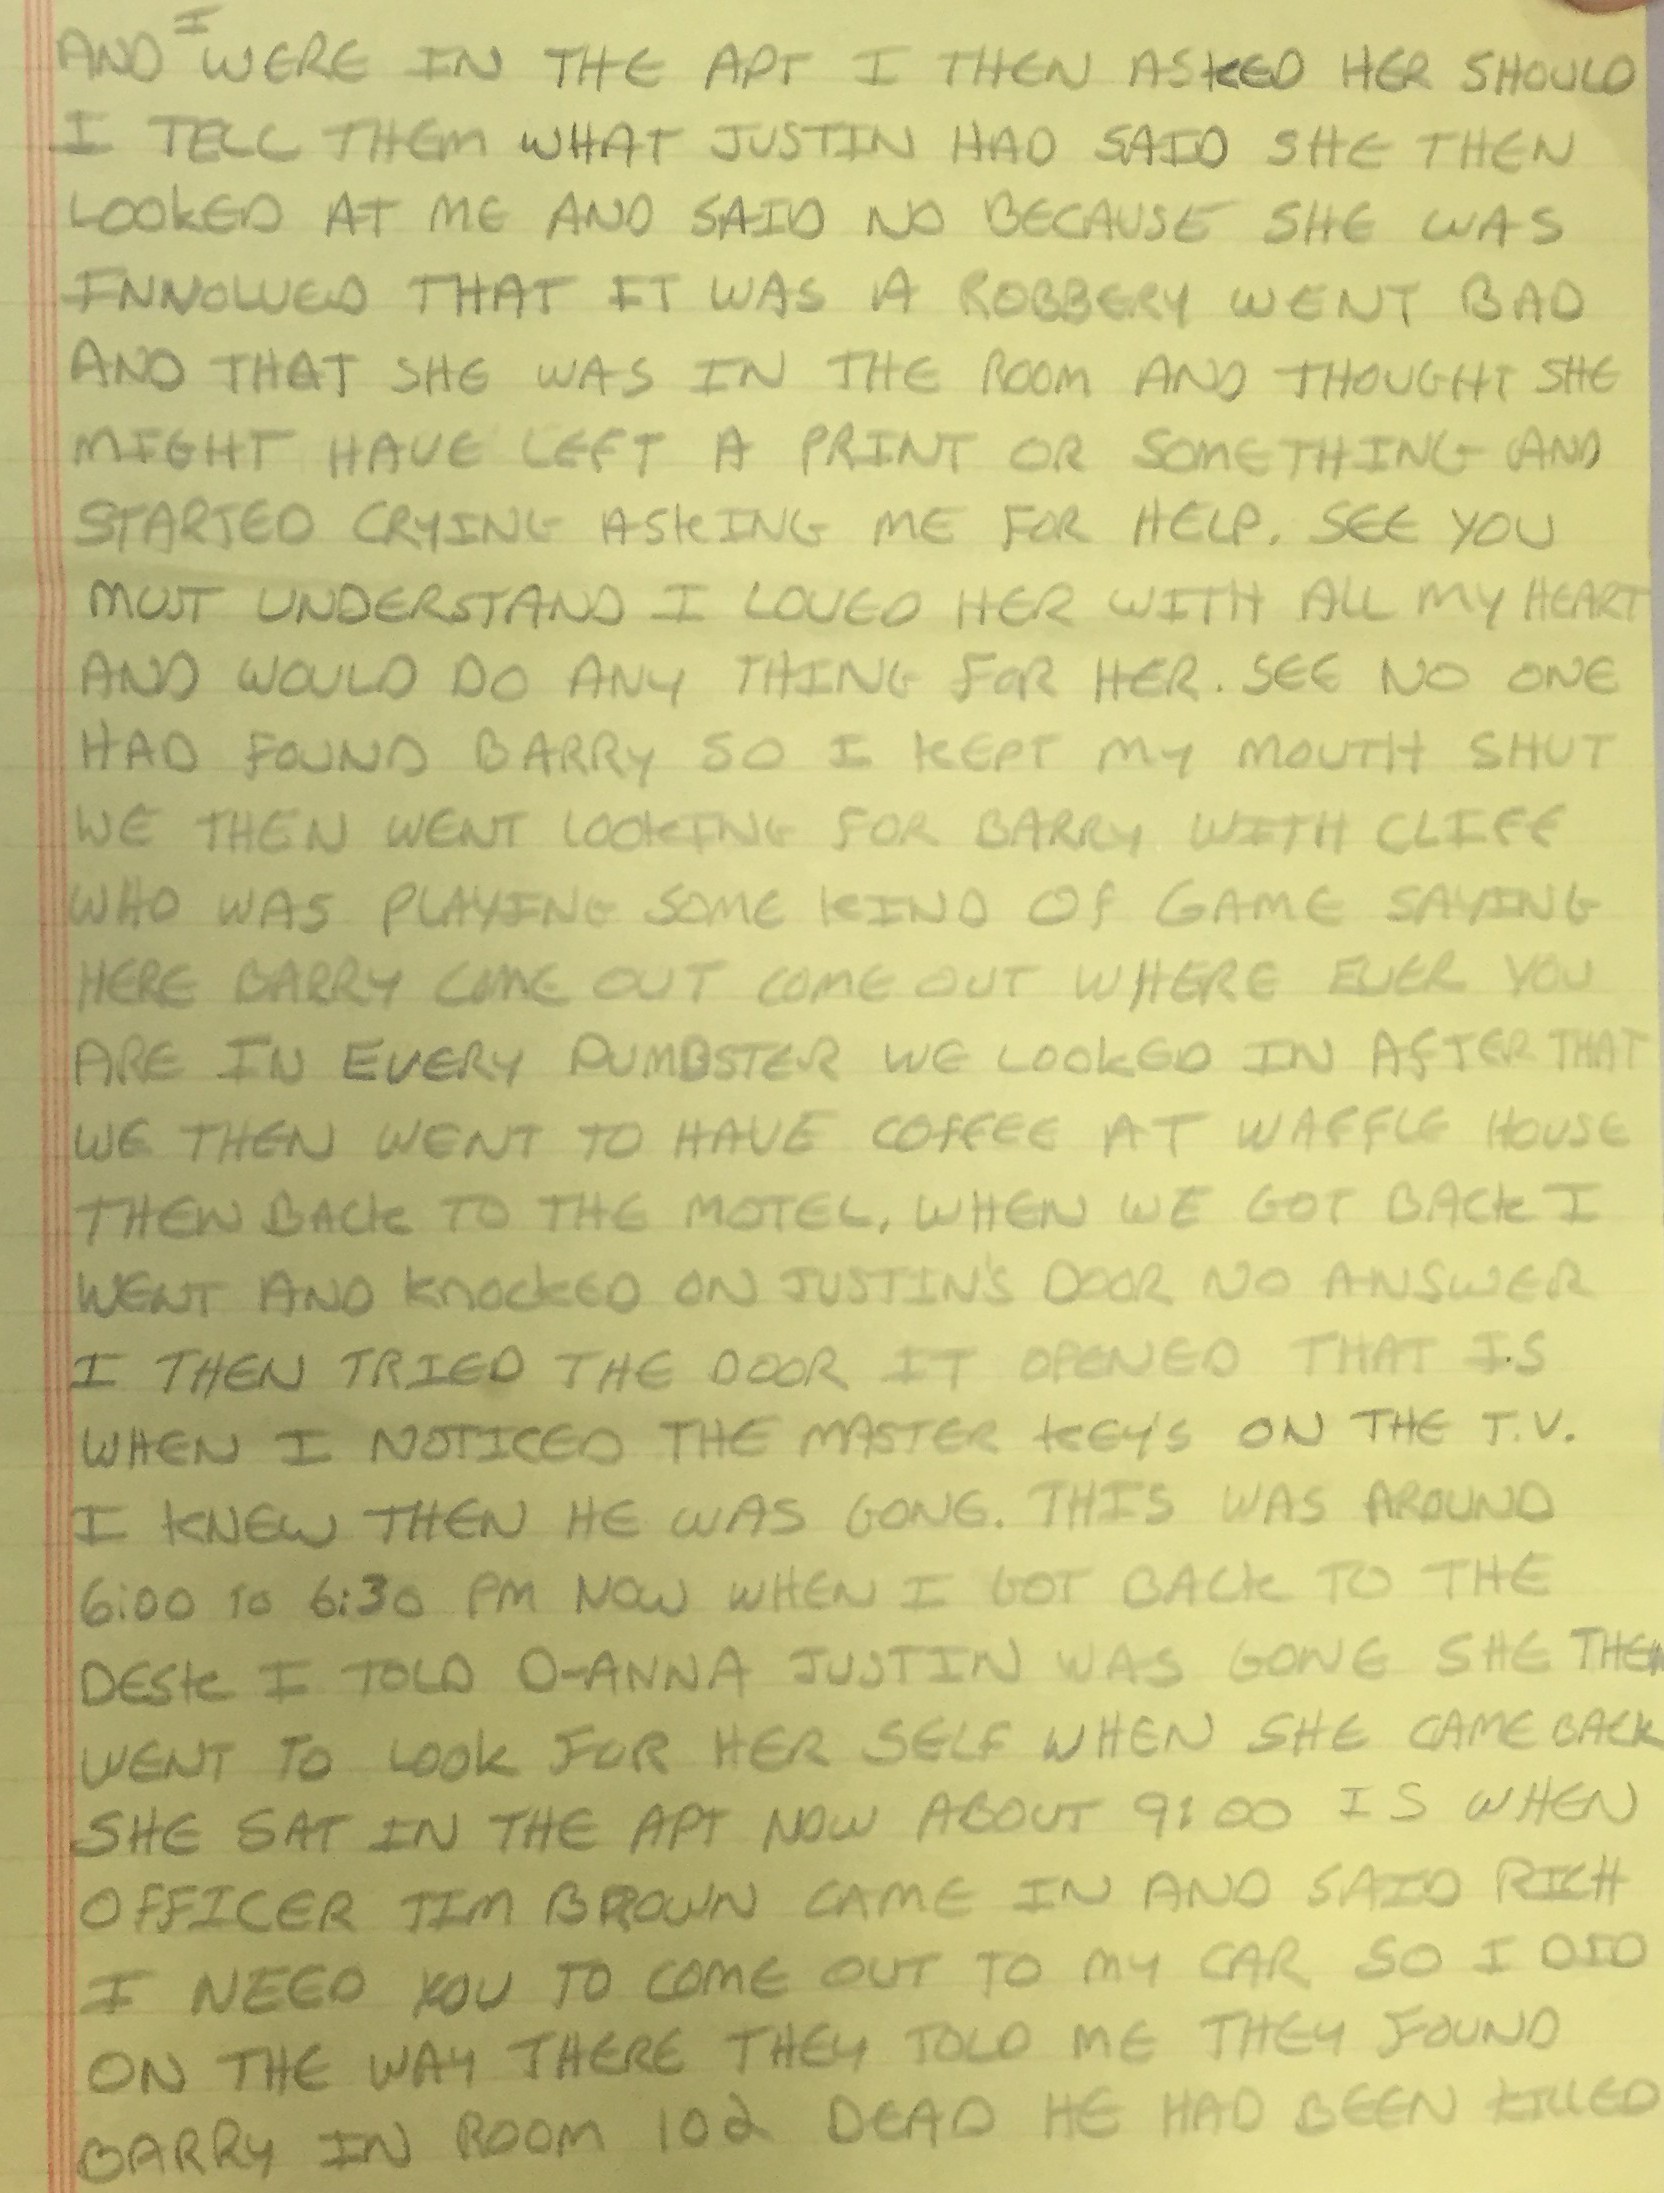 AND I WERE IN THE APT I THEN ASKED HER SHOULD
I TELL THEM WHAT JUSTIN HAD SAID SHE THEN
LOOKED AT ME AND SAID NO BECAUSE SHE WAS
INNOLVED THAT IT WAS A ROBBERY WENT BAD
AND THAT SHE WAS IN THE ROOM AND THOUGHT SHE
MIGHT HAVE LEFT A PRINT OR SOMETHING AND
STARTED CRYING ASKING ME FOR HELP. SEE YOU
MUST UNDERSTAND I LOVED HER WITH ALL MY HEART
AND WOULD DO ANY THING FOR HER. SEE NO ONE
HAD FOUND BARRY SO I KEPT MY MOUTH SHUT
WE THEN WENT LOOKING FOR BARRY WITH CLIFF
WHO WAS PLAYING SOME KIND OF GAME SAYING
HERE BARRY COME OUT COME OUT WHERE EVER YOU
ARE IN EVERY DUMBSTER WE LOOKED IN AFTER THAT
WE THEN WENT TO HAVE COFFEE AT WAFFLE HOUSE
THEN BACK TO THE MOTEL. WHEN WE GOT BACK I
WENT AND KNOCKED ON JUSTIN'S DOOR NO ANSWER
I THEN TRIED THE DOOR IT OPENED THAT IS
WHEN I NOTICED THE MASTER KEY'S ON THE T.V.
I KNEW THEN HE WAS GONE. THIS WAS AROUND
6:00 TO 6:30 PM NOW WHEN I GOT BACK TO THE
DESK I TOLD D-ANNA JUSTIN WAS GONE SHE THEN
WENT TO LOOK FOR HER SELF WHEN SHE CAME BACK
SHE SAT IN THE APT NOW ABOUT 9:00 IS WHEN
OFFICER TIM BROWN CAME IN AND SAID RICH
I NEED YOU TO COME OUT TO MY CAR SO I DID
ON THE WAY THERE THEY TOLD ME THEY FOUND
BARRY IN ROOM 102 DEAD HE HAD BEEN KILLED